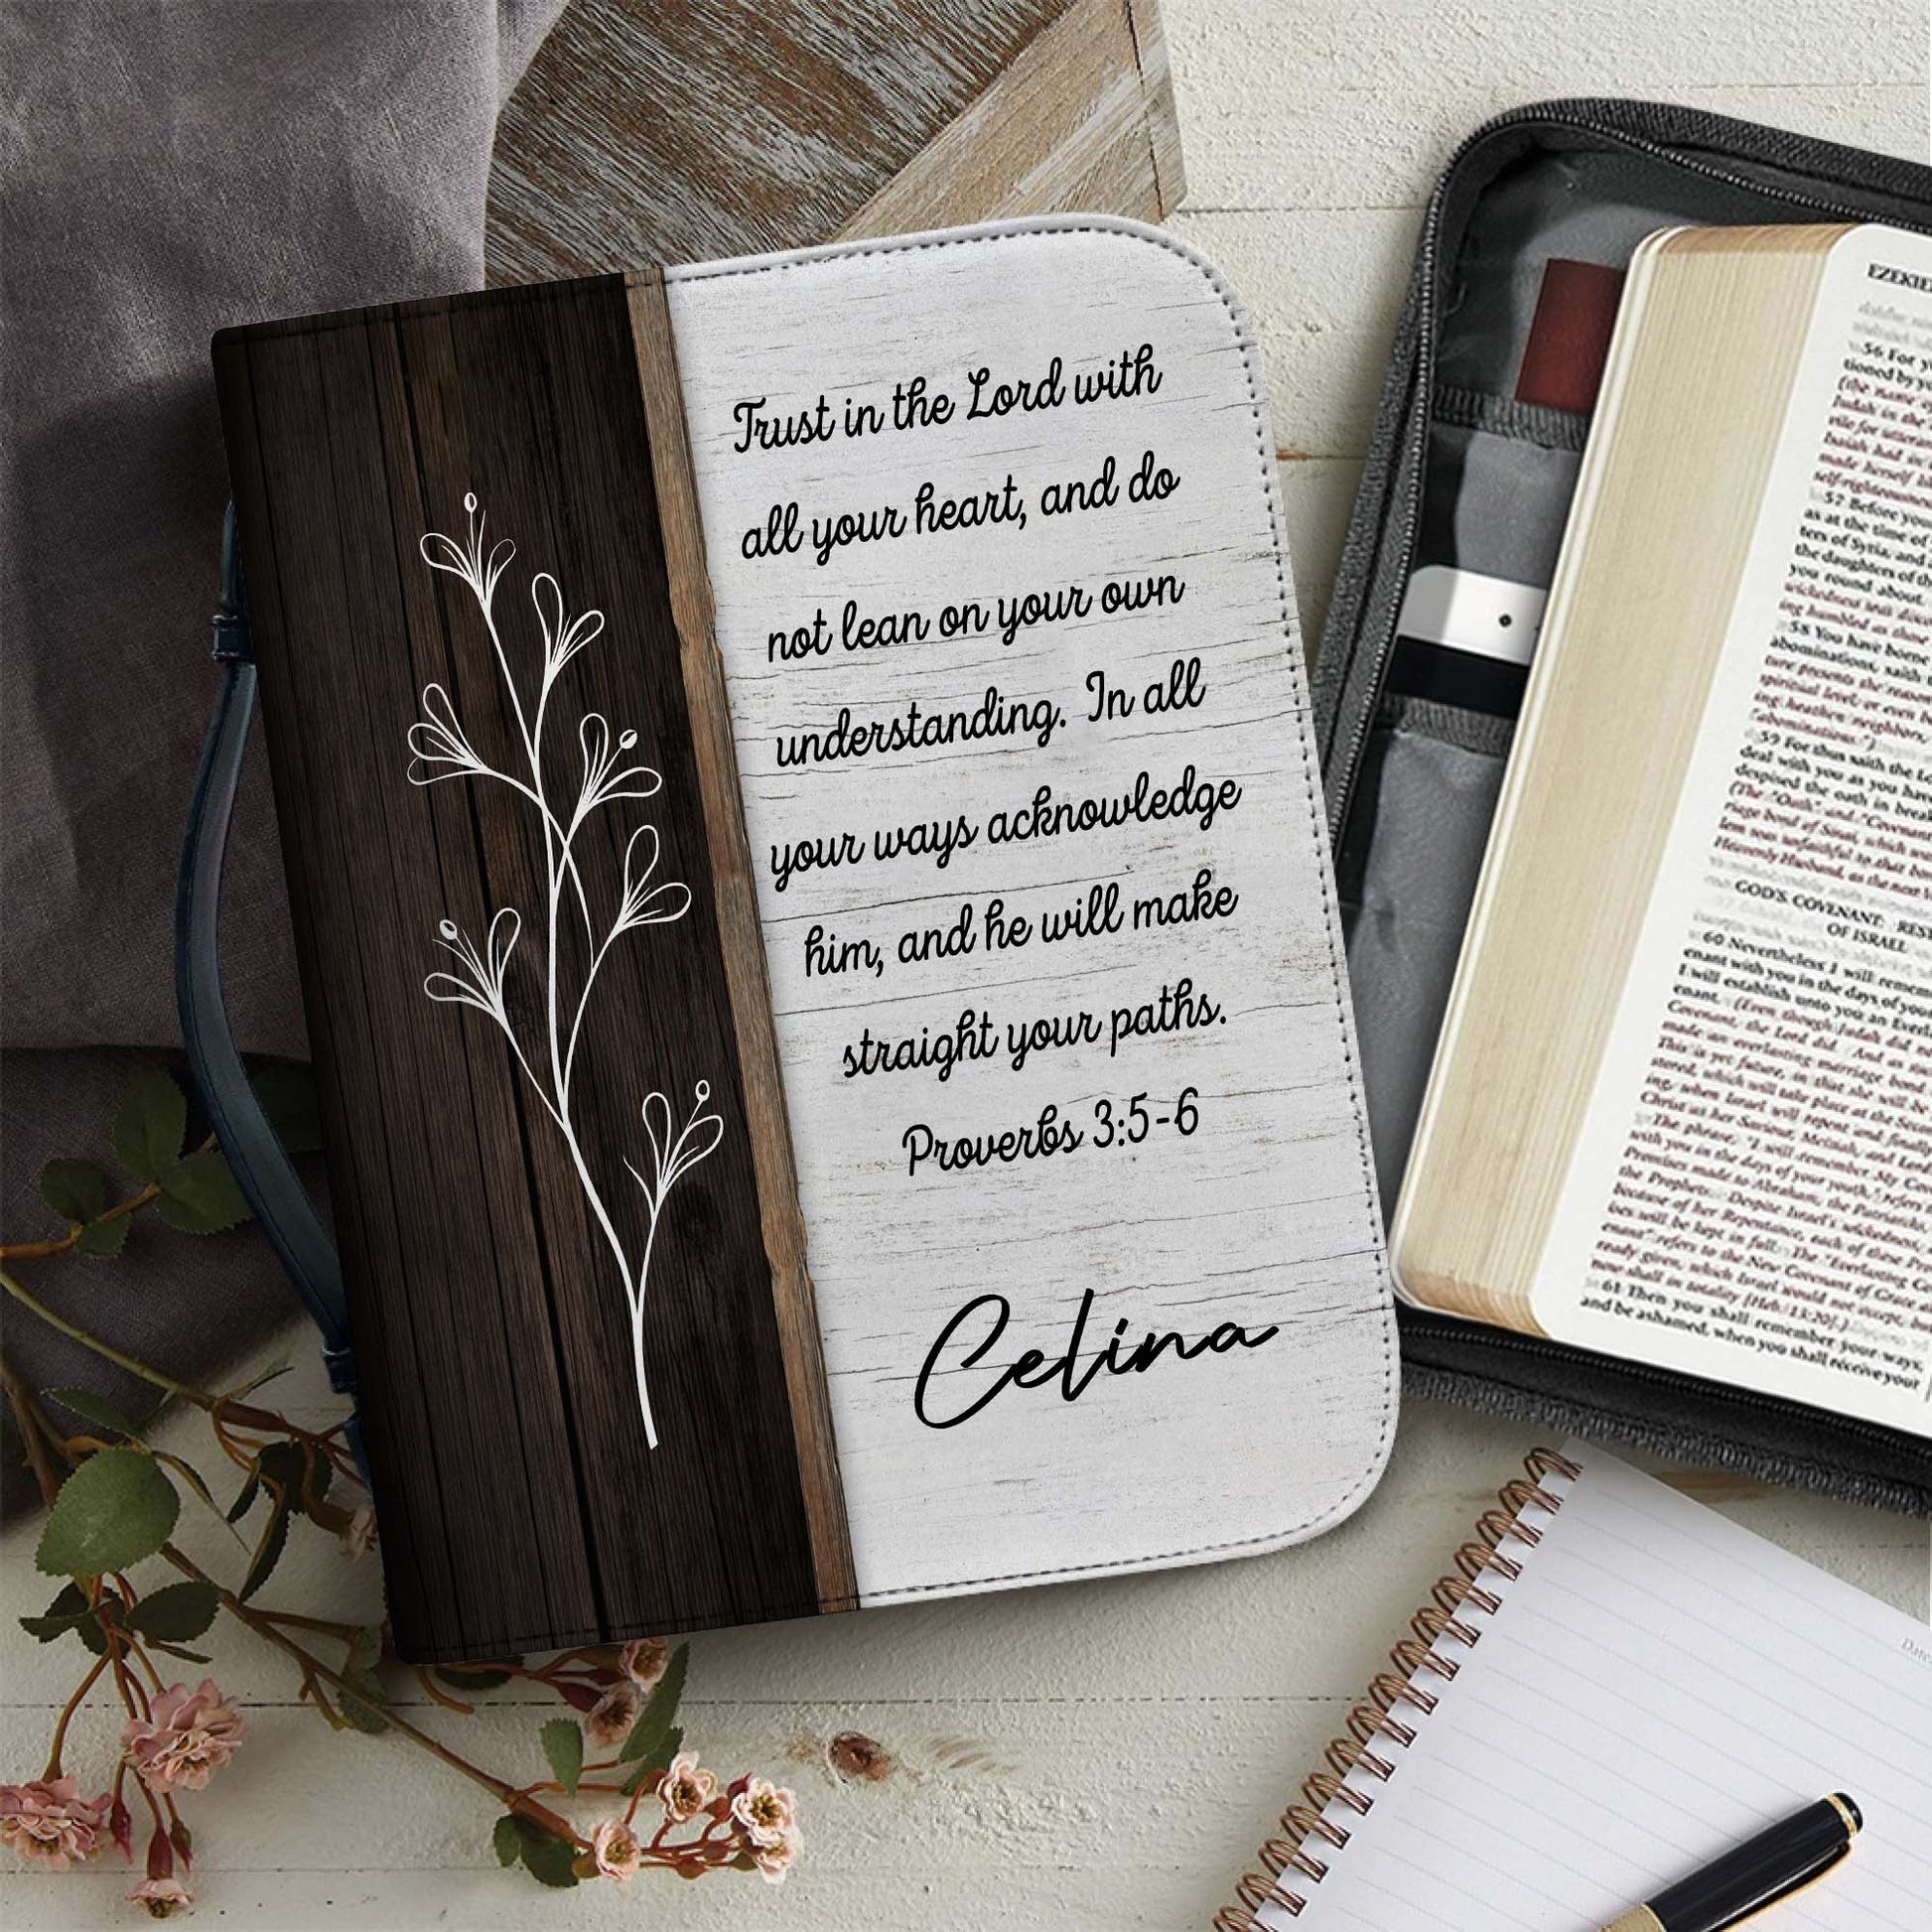 Trust in the Lord with
all your heart, and do
not lean on your own
understanding. In all
your ways acknowledge
him, and he will make
straight your paths.
Proverbs 3:5-6
Celina
EZEKIE
56 For y
tioned by y
(the name
Judah in th
made herself
self-righteousness
57 Before you
as at the time of
ters of Syria, and
the daughters of th
you round about
58 You have borne
abominations, saith
"abominations.")
59 For thus saith the L
deal with you as you ha
despised the oath in brea
(The "Oath" and "Covenant
riage bond of Sinai, which
Heavenly Husband, as the next
GOD'S COVENANT: REST
OF ISRAEL
60 Nevertheless I will remem
enant with you in the days of you
I will establish unto you an Ever
enant. (Even though Judah did
Covenant, the Lord did. And as
made an everlasting marriage bond
This is yet future, in that she will be
stored, which will take place at the Seco
ing, when Israel will repent and
Christ as her Saviour, Messiah, and Lord
The phrase, "I will remember My Cov
with you in the days of your youth," refers
Promises made to Abraham, the Patriarchs
the Prophets. Despite Israel's wickedness,
because of her Repentance, each of these Pr
ises will be kept in full. The "Everlasting C
enant" refers to the New Covenant of Grace
ready given, which Israel would not accept, b
now shall in totality [Heb. 13:20].)
61 Then you shall remember your ways,
and be ashamed, when you shall receive your
Date